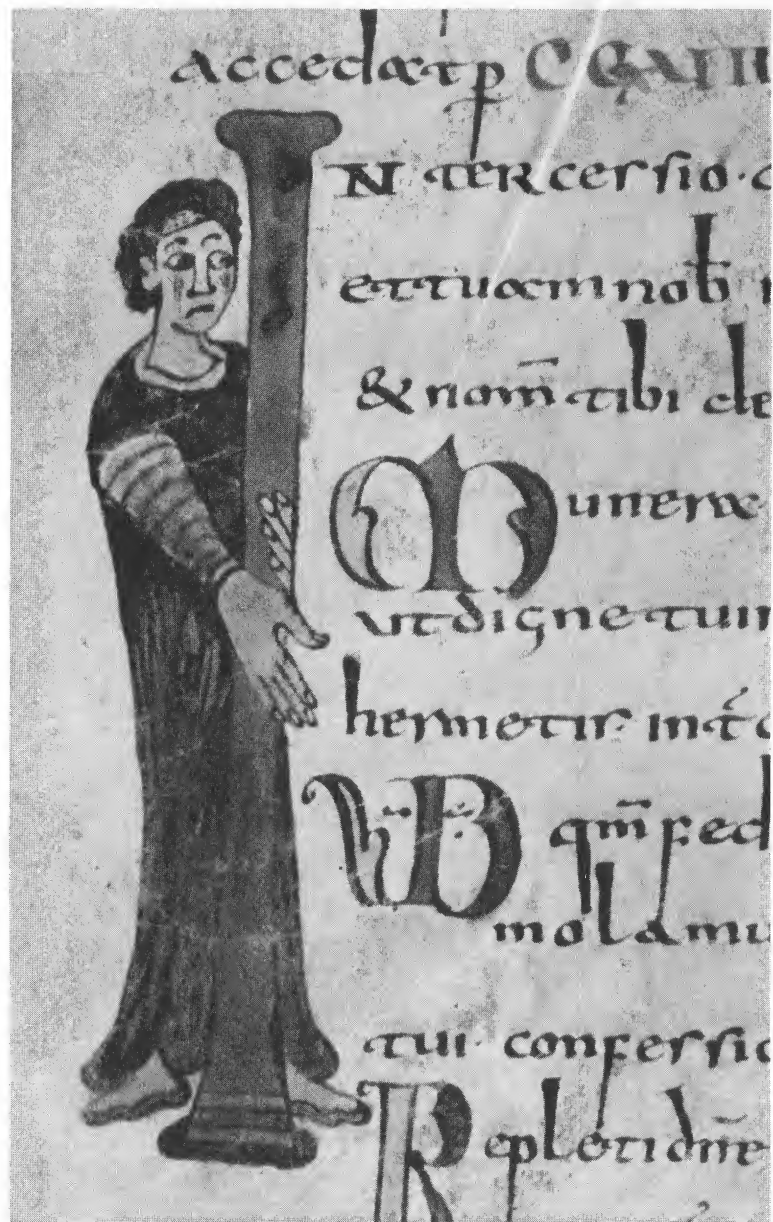 accedat p
IN TERcessio
et tuam nob
& nom̄ tibi
Munera
ut digne tui
hermetis int̄
VD qm̄ fed
molamu
tui confessio
Repleti dñe